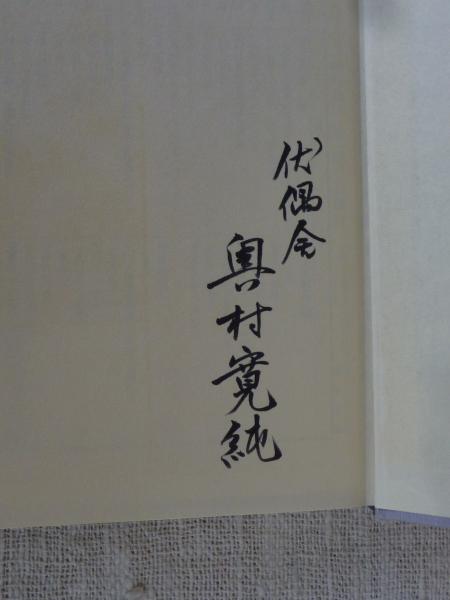 伏偶舎
奥村寛純